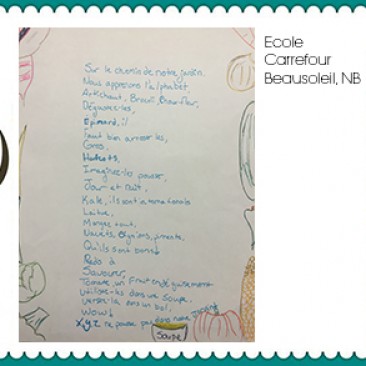 Ecole
Carrefour
Beausoleil, NB
Sur le chemin de notre jardin.
Nous apprenons l'alphabet
Artichaut, Brocoli, Chou-fleur,
Dégustez-les,
Epinard, il
faut bien arroser les,
Gros,
Haricots,
Imaginez-les pousser,
Jour et nuit,
Kale, ils sont comme
Laitue,
Mangez tout,
Navets, Oignons, pimente,
Qu'ils sont bons!
Radis à
Savourer,
Tomate, un fruit en déguisement
Utilisez-les dans une soupe,
Versez-la dans un bol,
Wow!
X,y,z ne pousse pas dans notre jardin!
Soupe